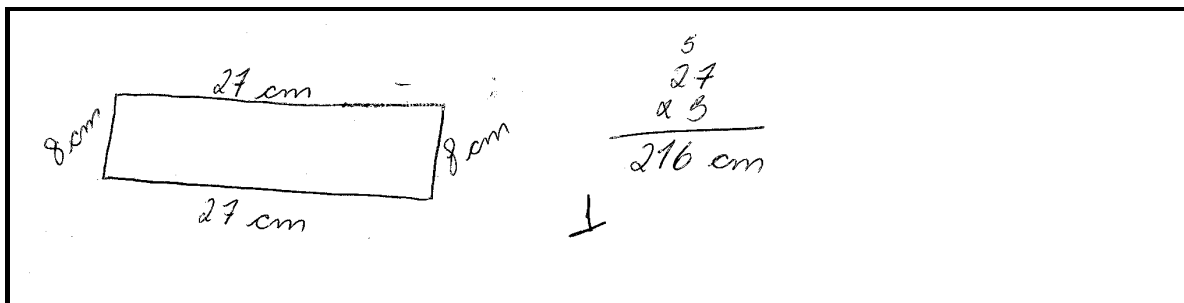 27 cm
8 cm
8 cm
27 cm
5
27
x 8
216 cm
1